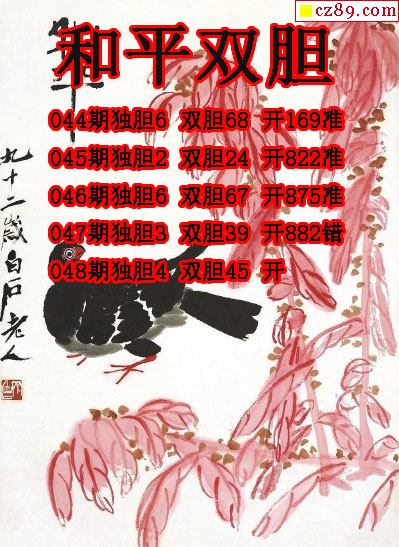 cz89.com
和平双胆
044期独胆6 双胆68 开169准
045期独胆2 双胆24 开822准
046期独胆6 双胆67 开875准
047期独胆3 双胆39 开882错
048期独胆4 双胆45 开
九十二岁白石老人